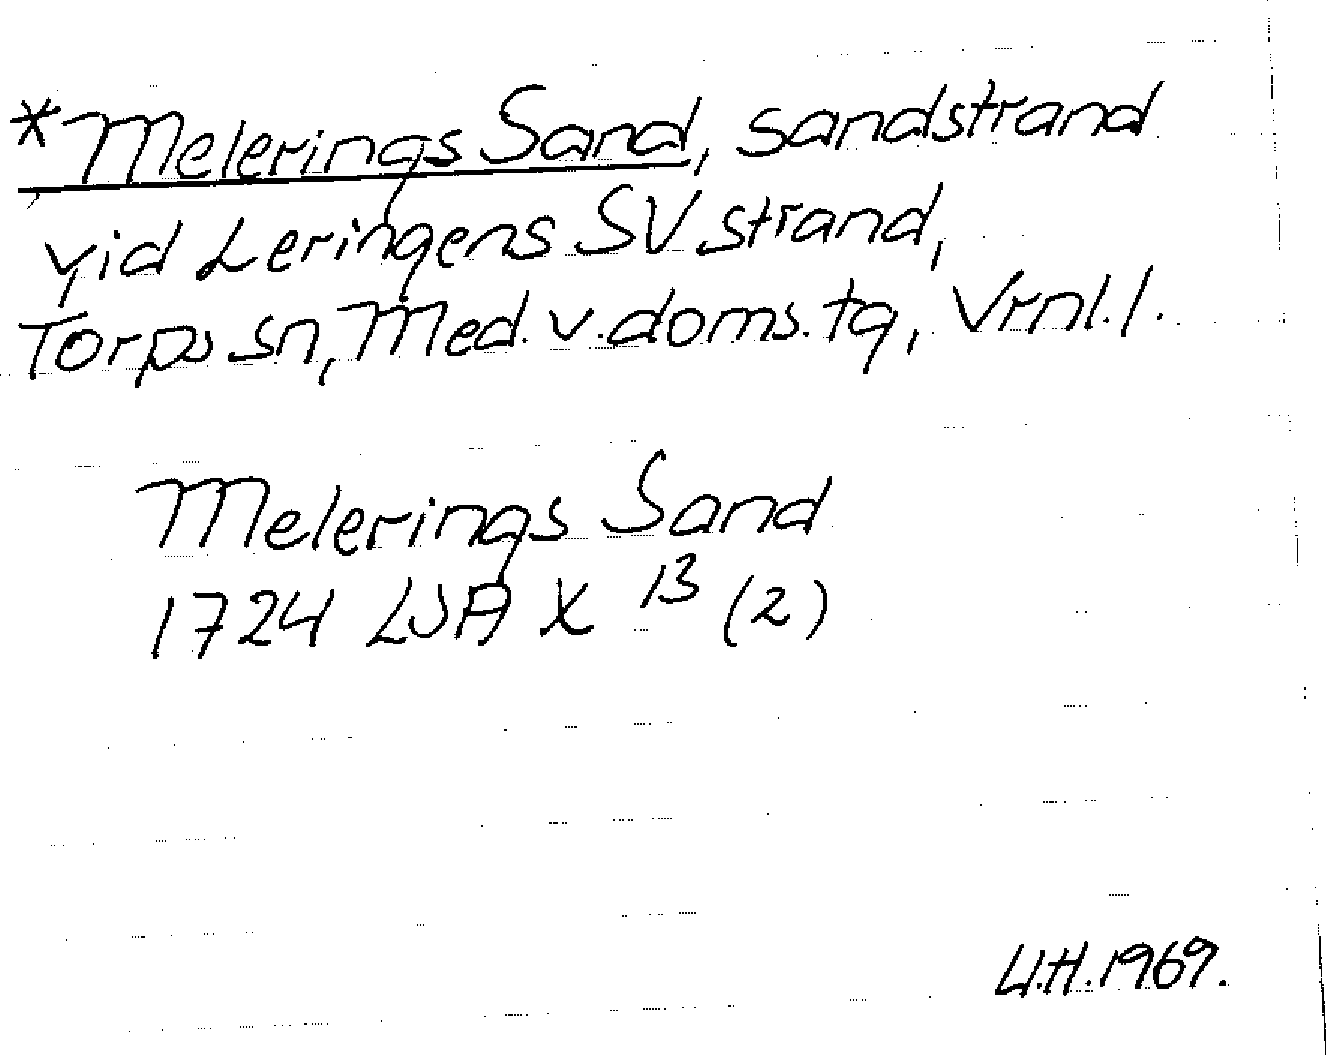 *Melerings Sand, sandstrand
vid Leringens SV strand,
Torps sn, Med. v. doms. tg, Vrnl. l.
Melerings Sand
1724 LSA X 13 (2)
U.H. 1969.